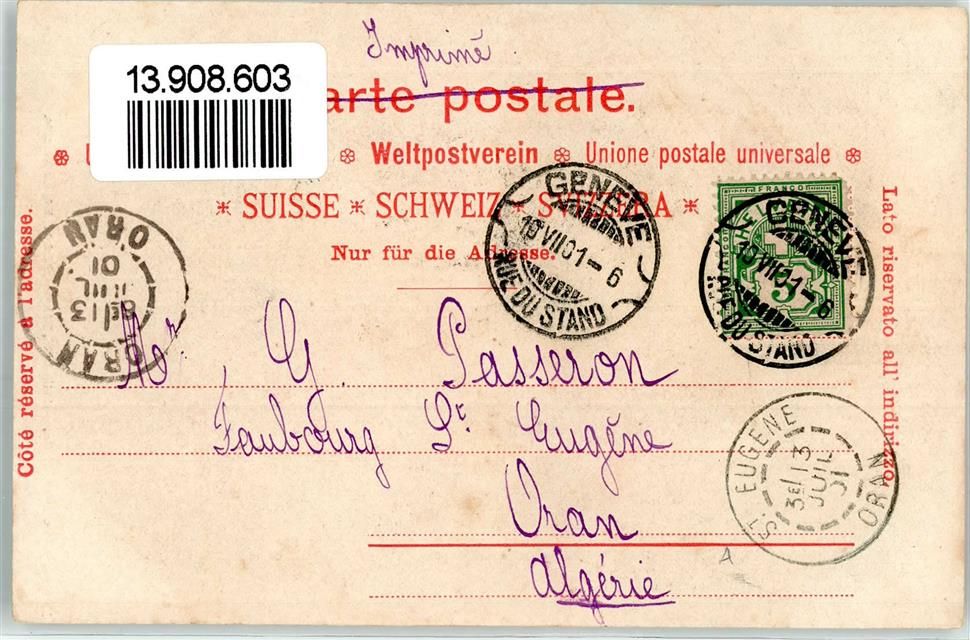 Imprimé
13.908.603
arte postale.
Weltpostverein Unione postale universale
SUISSE SCHWEIZ SVIZZERA
Nur für die Adresse.
Côté réservé à l'adresse.
Lato riservato all' indirizzo.
FRANCO
GENEVE
VII 01-6
RUE DU STAND
GENEVE
VII 01-6
RUE DU STAND
ORAN
13
JUIL
01
ORAN
Mr G. Passeron
Faubourg St Eugène
Oran
Algérie
ST EUGENE
3E/13
JUIL
01
ORAN
A